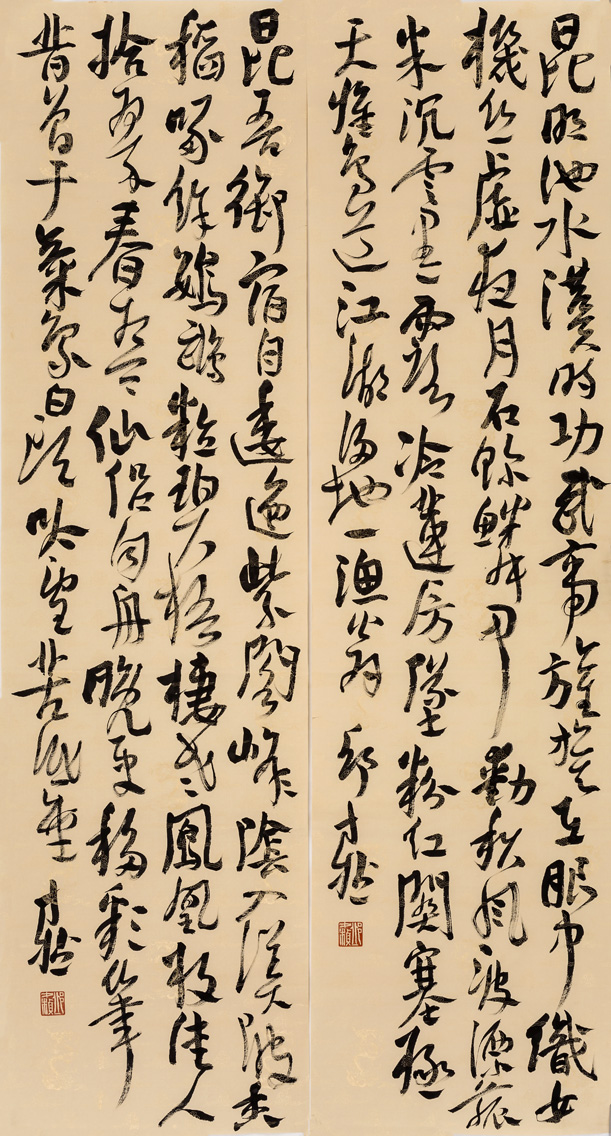 昆明池水漢時功武帝旌旗在眼中織女
機絲虛夜月石鯨鱗甲動秋風波漂菰
米沉雲黑露冷蓮房墜粉紅關塞極
天惟鳥道江湖滿地一漁翁 邱才楨
昆吾御宿自逶迤紫閣峰陰入渼陂香
稻啄餘鸚鵡粒碧梧棲老鳳凰枝佳人
拾翠春相問仙侶同舟晚更移彩筆
昔曾干氣象白頭吟望苦低垂 才楨